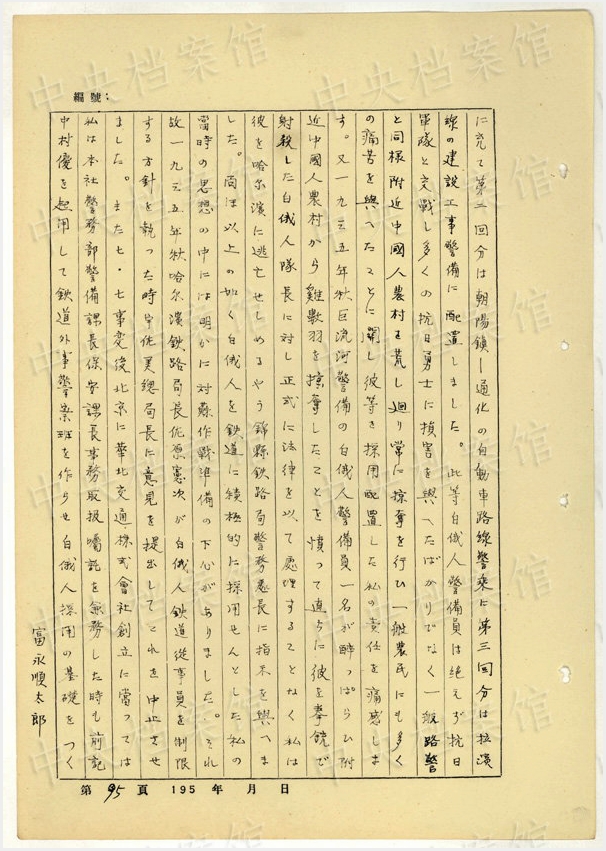 編號：
に充て第二回分は朝陽鎮―通化の自動車路線警乘に第三回分は拉濱
線の建設工事警備に配置しました。此等白俄人警備員は絶えず抗日
軍隊と交戰し多くの抗日勇士に損害を與へたばかりでなく一般路警
と同樣附近中國人農村を荒し廻り常に掠奪を行ひ一般農民にも多く
の痛苦を與へたことに関し彼等を採用配置した私の責任を痛感しま
す。又一九三五年秋巨流河警備の白俄人警備員一名が醉っぱらひ附
近中國人農村から雞數羽を掠奪したことを憤って直ちに彼を拳銃で
射殺した白俄人隊長に対し正式に法律を以て處理することなく私は
彼を哈尔濱に逃亡せしめるやう錦縣鉄路局警務處長に指示を與へま
した。尚ほ以上の如く白俄人を鉄道に積極的に採用せんとした私の
當時の思想の中には明かに対蘇作戰準備の下心がありました。それ
故一九三五年秋哈尔濱鉄路局長佐原憲次が白俄人鉄道從事員を制限
する方針を執った時も佐美總局長に意見を提出してこれを中止させ
ました。また七・七事変後北京に華北交通株式會社創立に當っては
私は本社警務部警備課長保安課長事務取扱囑託を兼務した時も前記
中村優を起用して鉄道外事警察班を作らせ白俄人採用の基礎をつく
富永順太郎
第 95 頁 195 年 月 日
中央档案馆